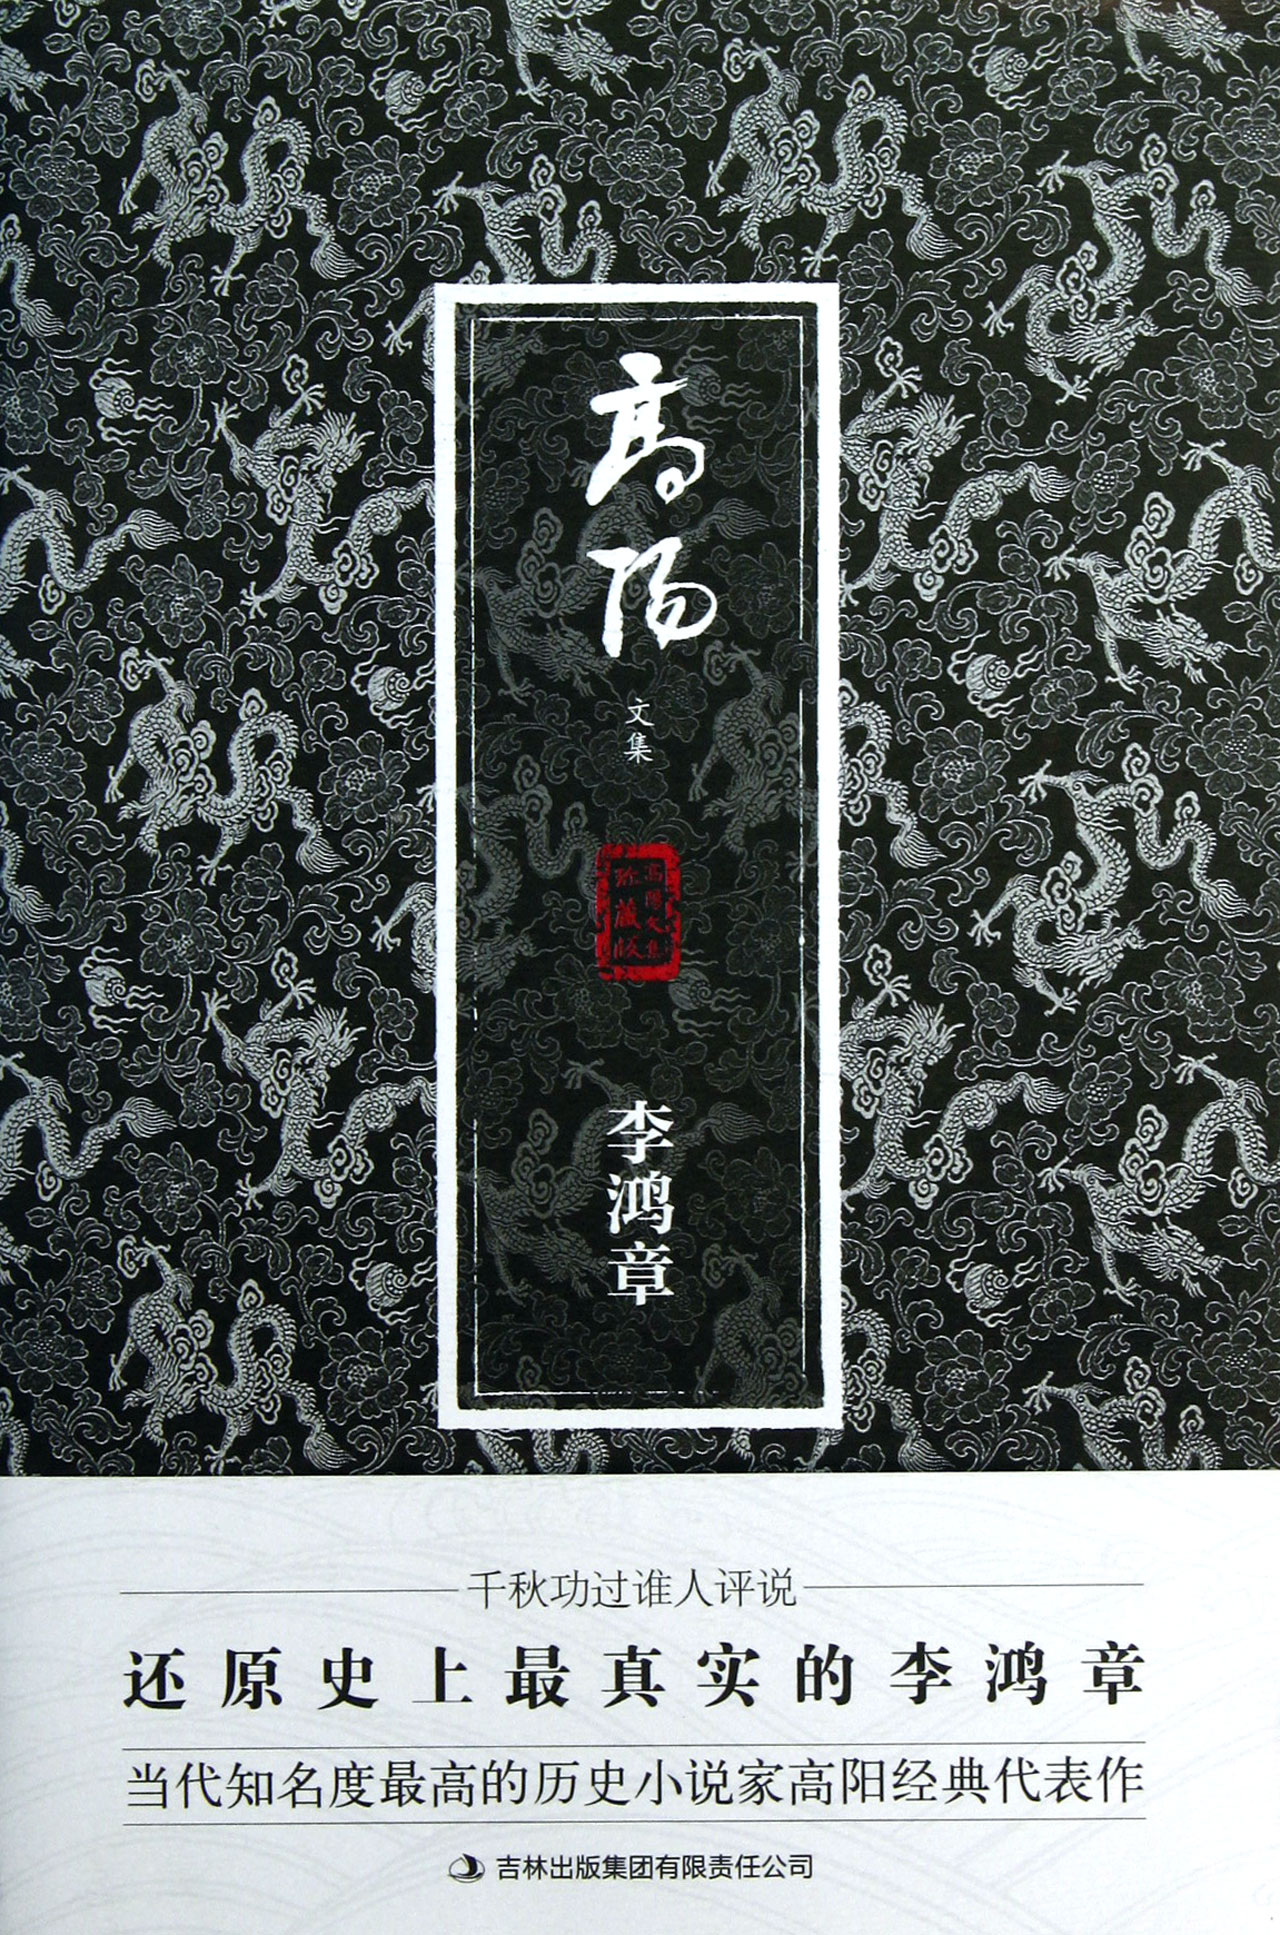 高阳
文集
高陽文集
珍藏版
李鸿章
千秋功过谁人评说
还原史上最真实的李鸿章
当代知名度最高的历史小说家高阳经典代表作
吉林出版集团有限责任公司